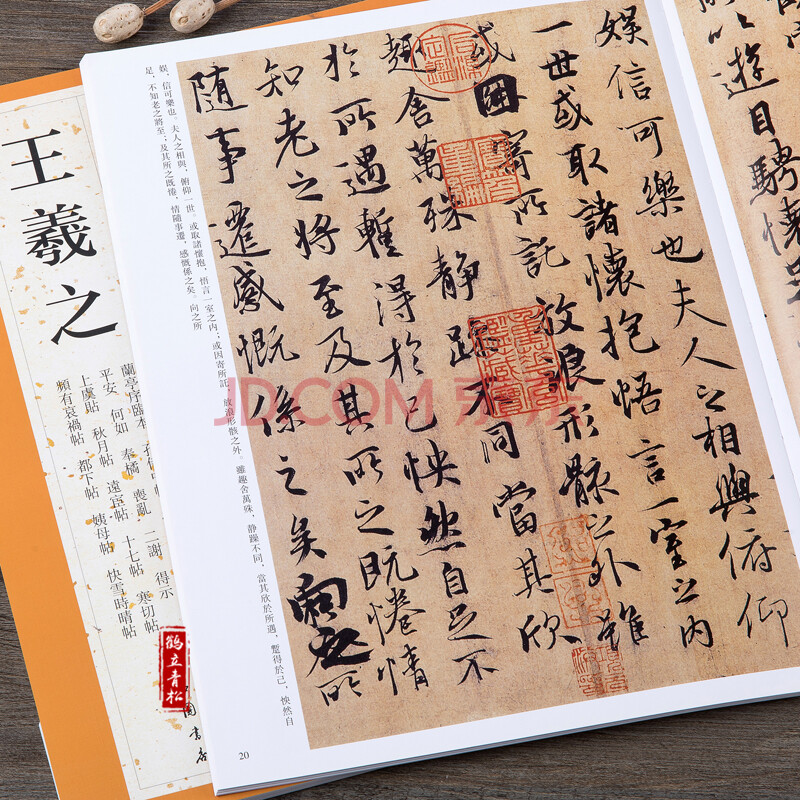 以遊目騁懷
娛信可樂也夫人之相與俯仰
一世或取諸懷抱悟言一室之內
或因寄所託放浪形骸之外雖
趣舍萬殊靜躁不同當其欣
於所遇蹔得於己怏然自足不
知老之將至及其所之既惓情
隨事遷感慨係之矣向之所
娛，信可樂也。夫人之相與，俯仰一世。或取諸懷抱，悟言一室之內；或因寄所託，放浪形骸之外。雖趣舍萬殊，靜躁不同，當其欣於所遇，蹔得於己，怏然自
足，不知老之將至；及其所之既惓，情隨事遷，感慨係之矣。向之所
20
王羲之
蘭亭序臨本
平安 何如 奉橘 喪亂 二謝 得示
上虞帖 秋月帖 遠宦帖 十七帖 寒切帖
頻有哀禍帖 都下帖 姨母帖 快雪時晴帖
鶴立青松
國書店
JD.COM 京东